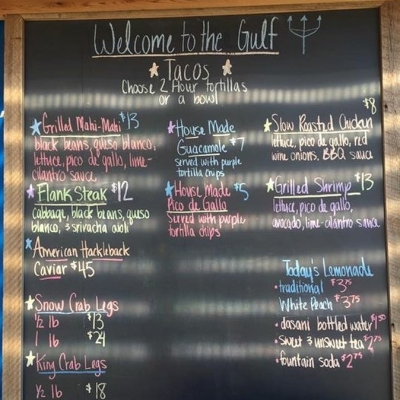 Welcome to the Gulf
Tacos
Choose 2 flour tortillas
or a bowl
Grilled Mahi-Mahi $13
black beans, queso blanco,
lettuce, pico de gallo, lime-
cilantro sauce
Flank Steak $12
cabbage, black beans, queso
blanco, & sriracha aioli
American Hackleback
Caviar $45
Snow Crab Legs
1/2 lb $13
1 lb $24
King Crab Legs
1/2 lb $18
House Made
Guacamole $7
served with purple
tortilla chips
House Made $5
Pico de Gallo
Served with purple
tortilla chips
$8
Slow Roasted Chicken
lettuce, pico de gallo, red
wine onions, BBQ sauce
Grilled Shrimp $13
lettuce, pico de gallo,
avocado, lime-cilantro sauce
Today's Lemonade
• traditional $3.75
White Peach $3.75
• dasani bottled water $1.50
• sweet & unsweet tea $2.75
• fountain soda $2.75